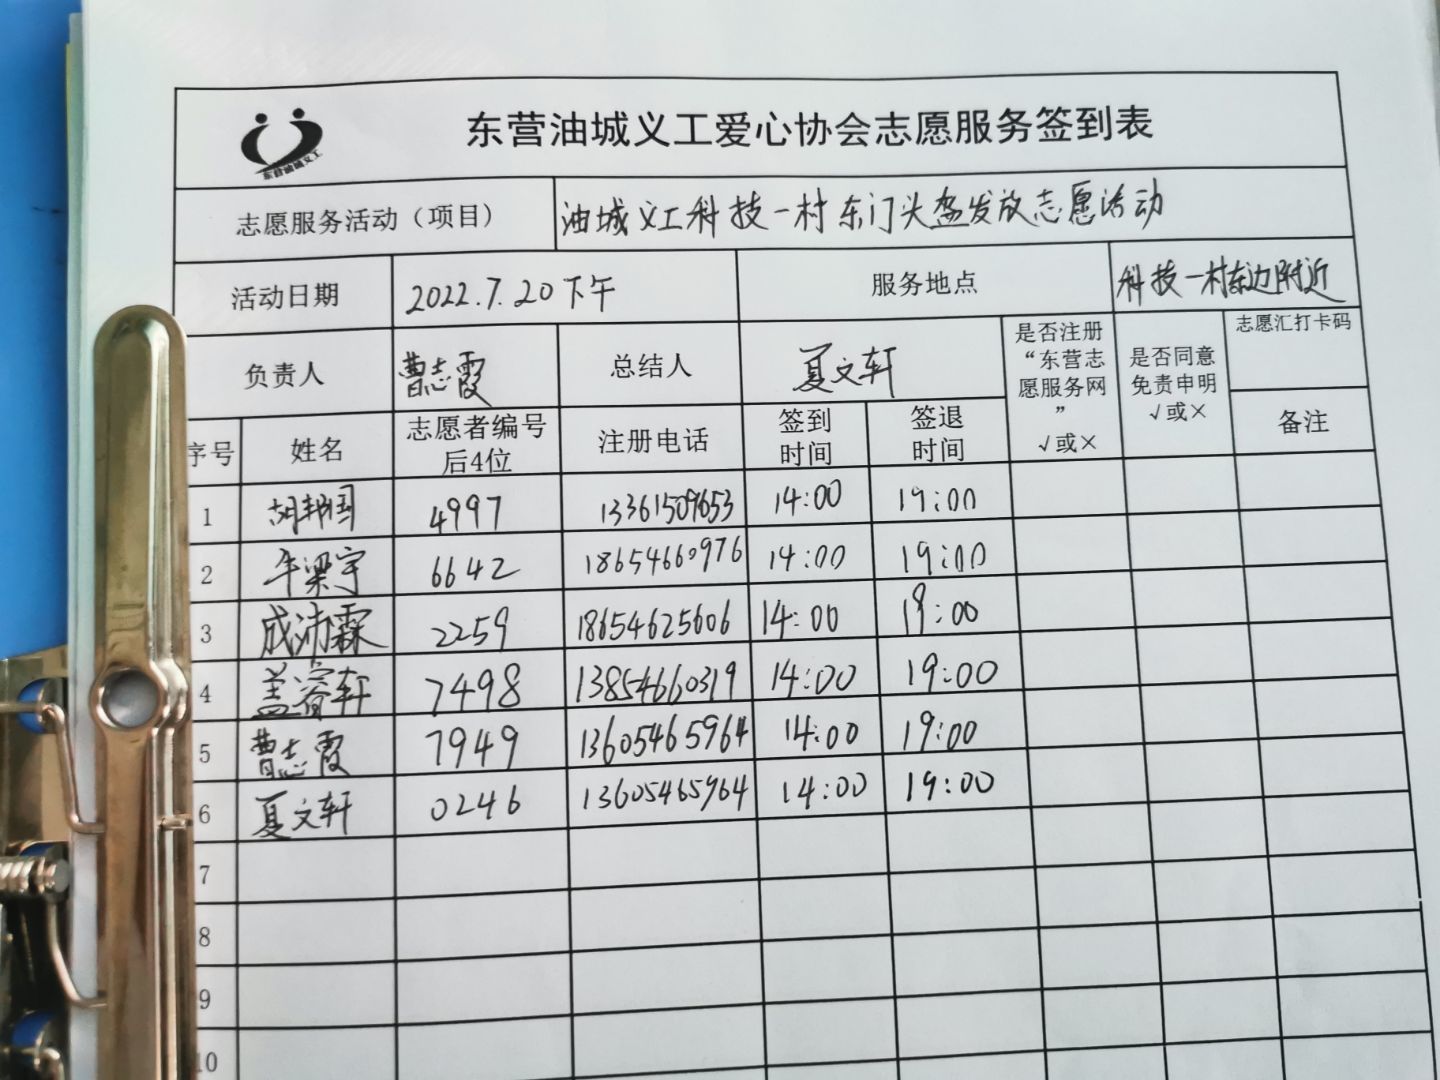 东营油城义工爱心协会志愿服务签到表
东营油城义工
志愿服务活动（项目） 油城义工科技一村东门头盔发放志愿活动
活动日期 2022.7.20下午 服务地点 科技一村东边附近
负责人 曹志霞 总结人 夏文轩 是否注册“东营志愿服务网”√或× 是否同意免责申明√或× 志愿汇打卡码
序号 姓名 志愿者编号后4位 注册电话 签到时间 签退时间 备注
1 胡邦国 4997 13361509653 14:00 19:00
2 牛梁宇 6642 18654660976 14:00 19:00
3 成沛霖 2259 18654625606 14:00 19:00
4 盖睿轩 7498 13854660319 14:00 19:00
5 曹志霞 7949 13605465964 14:00 19:00
6 夏文轩 0246 13605465964 14:00 19:00
7
8
9
10